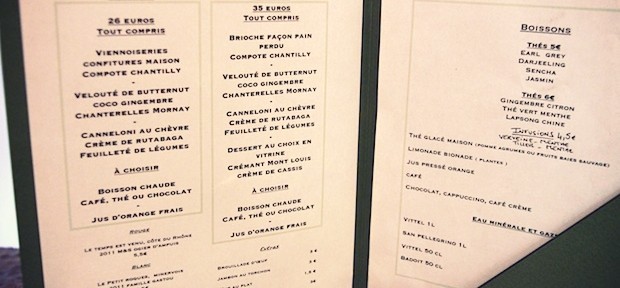 26 euros
Tout compris
Viennoiseries
confitures maison
Compote chantilly
-
Velouté de butternut
coco gingembre
Chanterelles Mornay
-
Canneloni au chèvre
Crème de rutabaga
Feuilleté de légumes
-
À choisir
Boisson chaude
Café, thé ou chocolat
-
Jus d'orange frais
Rouge
Le temps est venu, Côte du Rhône
Blanc
35 euros
Tout compris
Brioche façon pain
perdu
Compote chantilly
-
Velouté de butternut
coco gingembre
Chanterelles Mornay
-
Canneloni au chèvre
Crème de rutabaga
Feuilleté de légumes
-
Dessert au choix en
vitrine
Crémant Mont Louis
crème de cassis
À choisir
Boisson chaude
Café, thé ou chocolat
-
Jus d'orange frais
Extras
Brouillade d'oeuf
Jambon au torchon
Boissons
Thés 5€
Earl grey
Darjeeling
Sencha
Jasmin
Thés 6€
Gingembre citron
Thé vert menthe
Lapsong chine
Infusions 4,5€
Verveine - Menthe
Tilleul - Menthe
Thé glacé maison (pomme agrumes ou fruits baies sauvage)
Limonade Bionade (plantes)
Jus pressé orange
Café
Chocolat, cappuccino, café crème
Eau minérale et gaz
Vittel 1L
San pellegrino 1L
Vittel 50 cl
Badoit 50 cl